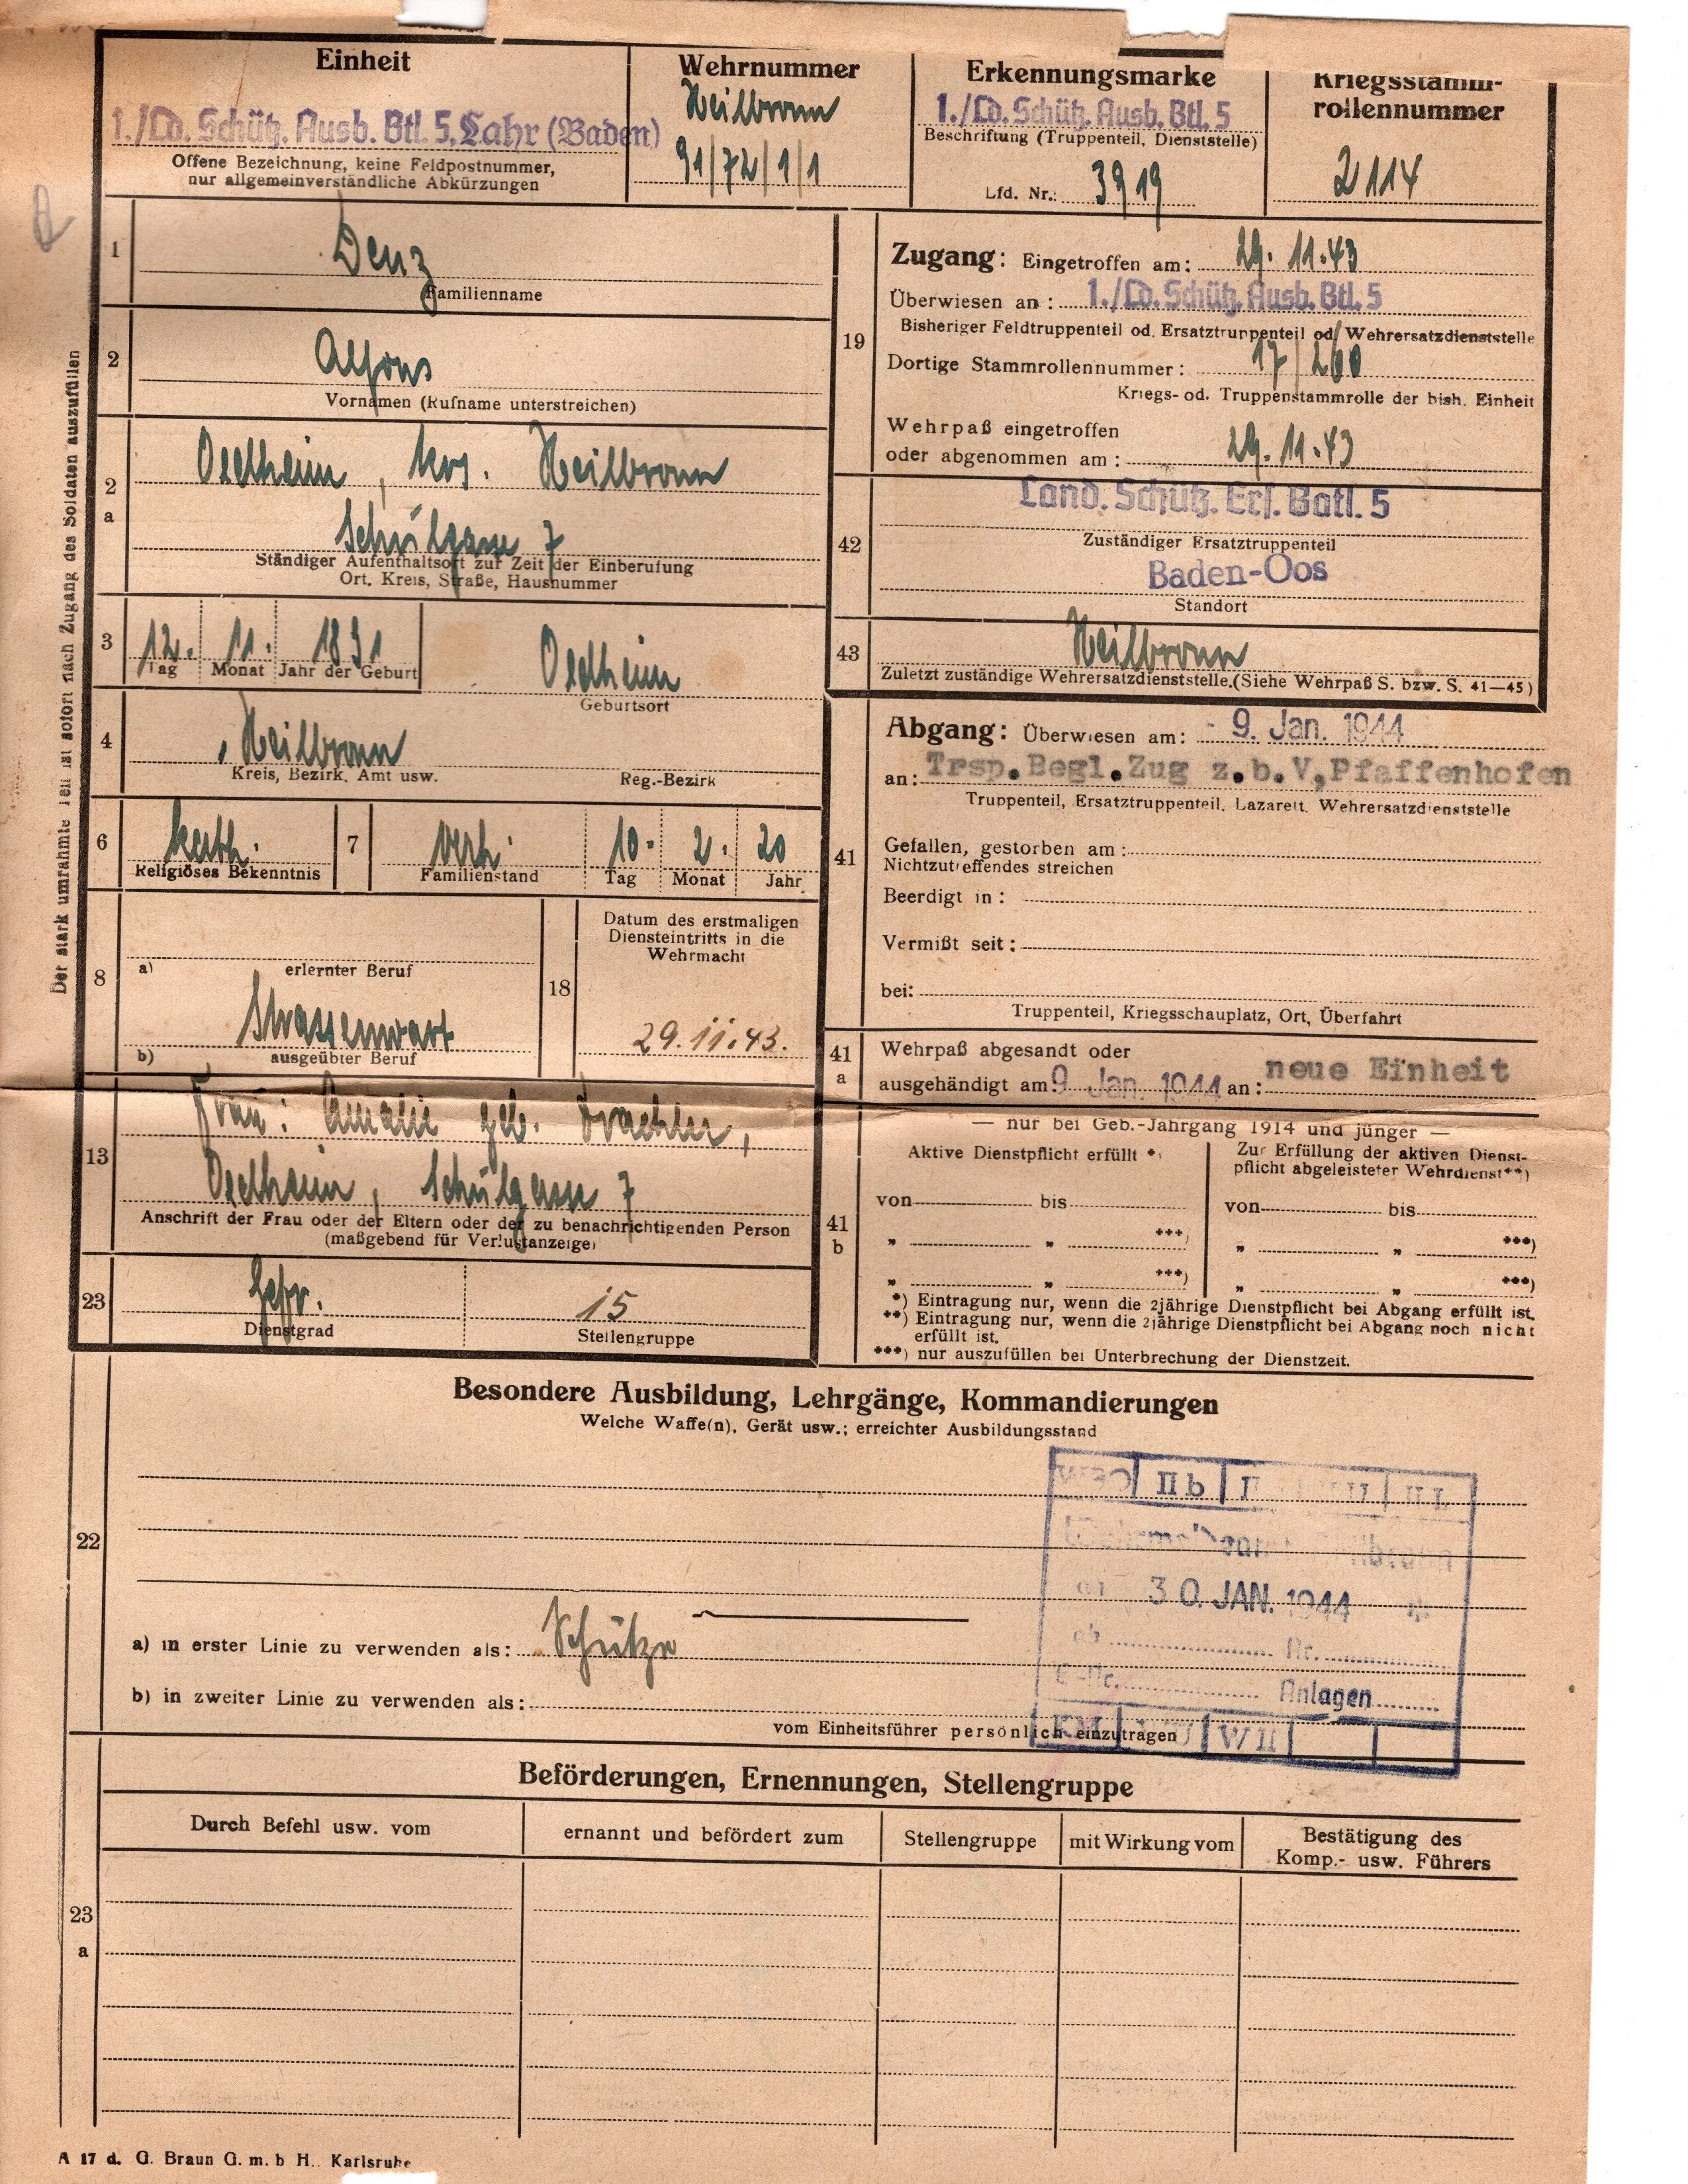 Einheit
1./Ld. Schütz. Ausb. Btl. 5, Lahr (Baden)
Offene Bezeichnung, keine Feldpostnummer,
nur allgemeinverständliche Abkürzungen
Wehrnummer
Heilbronn
91/72/1/1
Erkennungsmarke
1./Ld. Schütz. Ausb. Btl. 5
Beschriftung (Truppenteil, Dienststelle)
Lfd. Nr.: 3919
Kriegsstamm-
rollennummer
2114
Der stark umrahmte Teil ist sofort nach Zugang des Soldaten auszufüllen
1
Denz
Familienname
2
Alfons
Vornamen (Rufname unterstreichen)
2
a
Oedheim, Krs. Heilbronn
Schulgasse 7
Ständiger Aufenthaltsort zur Zeit der Einberufung
Ort, Kreis, Straße, Hausnummer
3
12. 11. 1891
Tag Monat Jahr der Geburt
Oedheim
Geburtsort
4
Heilbronn
Kreis, Bezirk, Amt usw. Reg.-Bezirk
6
kath.
Religiöses Bekenntnis
7
verh. 10. 2. 20
Familienstand Tag Monat Jahr
8
a) erlernter Beruf
Strassenwart
b) ausgeübter Beruf
18
Datum des erstmaligen
Diensteintritts in die
Wehrmacht
29.11.43.
13
Frau: Amalie geb.
Oedheim, Schulgasse 7
Anschrift der Frau oder der Eltern oder der zu benachrichtigenden Person
(maßgebend für Verlustanzeige)
23
Gefr. 15
Dienstgrad Stellengruppe
19
Zugang: Eingetroffen am: 29. 11. 43
Überwiesen an: 1./Ld. Schütz. Ausb. Btl. 5
Bisheriger Feldtruppenteil od. Ersatztruppenteil od. Wehrersatzdienststelle
Dortige Stammrollennummer: 17/260
Kriegs- od. Truppenstammrolle der bish. Einheit
Wehrpaß eingetroffen
oder abgenommen am: 29. 11. 43
42
Land. Schütz. Ers. Batl. 5
Zuständiger Ersatztruppenteil
Baden-Oos
Standort
43
Heilbronn
Zuletzt zuständige Wehrersatzdienststelle.(Siehe Wehrpaß S. bzw. S. 41—45)
41
Abgang: Überwiesen am: - 9. Jan. 1944
an: Trsp.Begl.Zug z.b.V,Pfaffenhofen
Truppenteil, Ersatztruppenteil, Lazarett, Wehrersatzdienststelle
Gefallen, gestorben am:
Nichtzutreffendes streichen
Beerdigt in:
Vermißt seit:
bei:
Truppenteil, Kriegsschauplatz, Ort, Überfahrt
41
a
Wehrpaß abgesandt oder
ausgehändigt am: 9. Jan. 1944 an: neue Einheit
41
b
— nur bei Geb.-Jahrgang 1914 und jünger —
Aktive Dienstpflicht erfüllt *)
von bis
" " ***)
" " ***)
Zur Erfüllung der aktiven Dienst-
pflicht abgeleisteter Wehrdienst**)
von bis
" " ***)
" " ***)
*) Eintragung nur, wenn die 2jährige Dienstpflicht bei Abgang erfüllt ist.
**) Eintragung nur, wenn die 2jährige Dienstpflicht bei Abgang noch nicht
erfüllt ist.
***) nur auszufüllen bei Unterbrechung der Dienstzeit.
22
Besondere Ausbildung, Lehrgänge, Kommandierungen
Welche Waffe(n), Gerät usw.; erreichter Ausbildungsstand
II b II
30. JAN. 1944
ab Nr.
Anlagen
W II
a) in erster Linie zu verwenden als: Schütze
b) in zweiter Linie zu verwenden als:
vom Einheitsführer persönlich einzutragen
23
a
Beförderungen, Ernennungen, Stellengruppe
Durch Befehl usw. vom
ernannt und befördert zum
Stellengruppe
mit Wirkung vom
Bestätigung des
Komp.- usw. Führers
A 17 d. G. Braun G. m. b H.. Karlsruhe